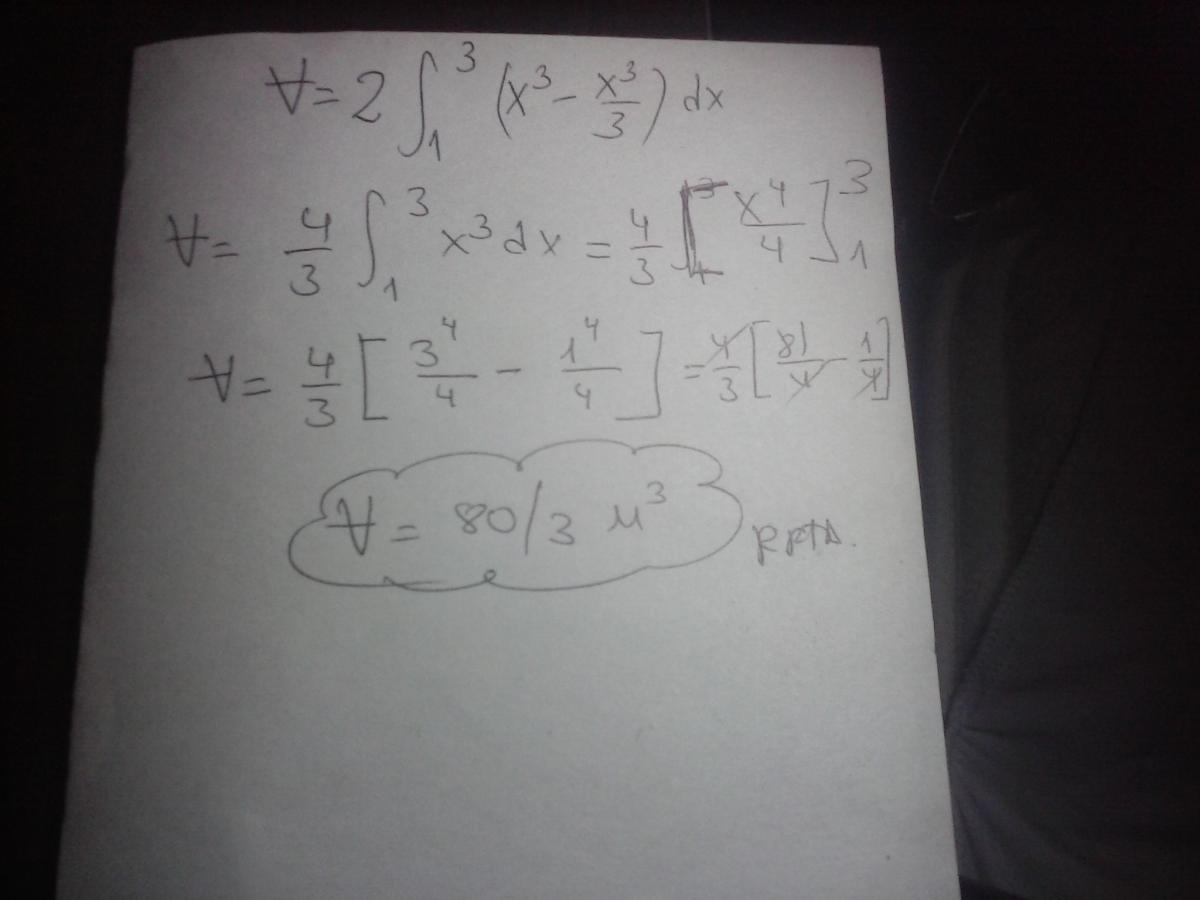 ∀= 2 ∫₁³ (x³ - x³/3) dx
∀= 4/3 ∫₁³ x³ dx = 4/3 [x⁴/4]₁³
∀= 4/3 [3⁴/4 - 1⁴/4] = 4/3 [81/4 - 1/4]
∀ = 80/3 u³ RPTA.